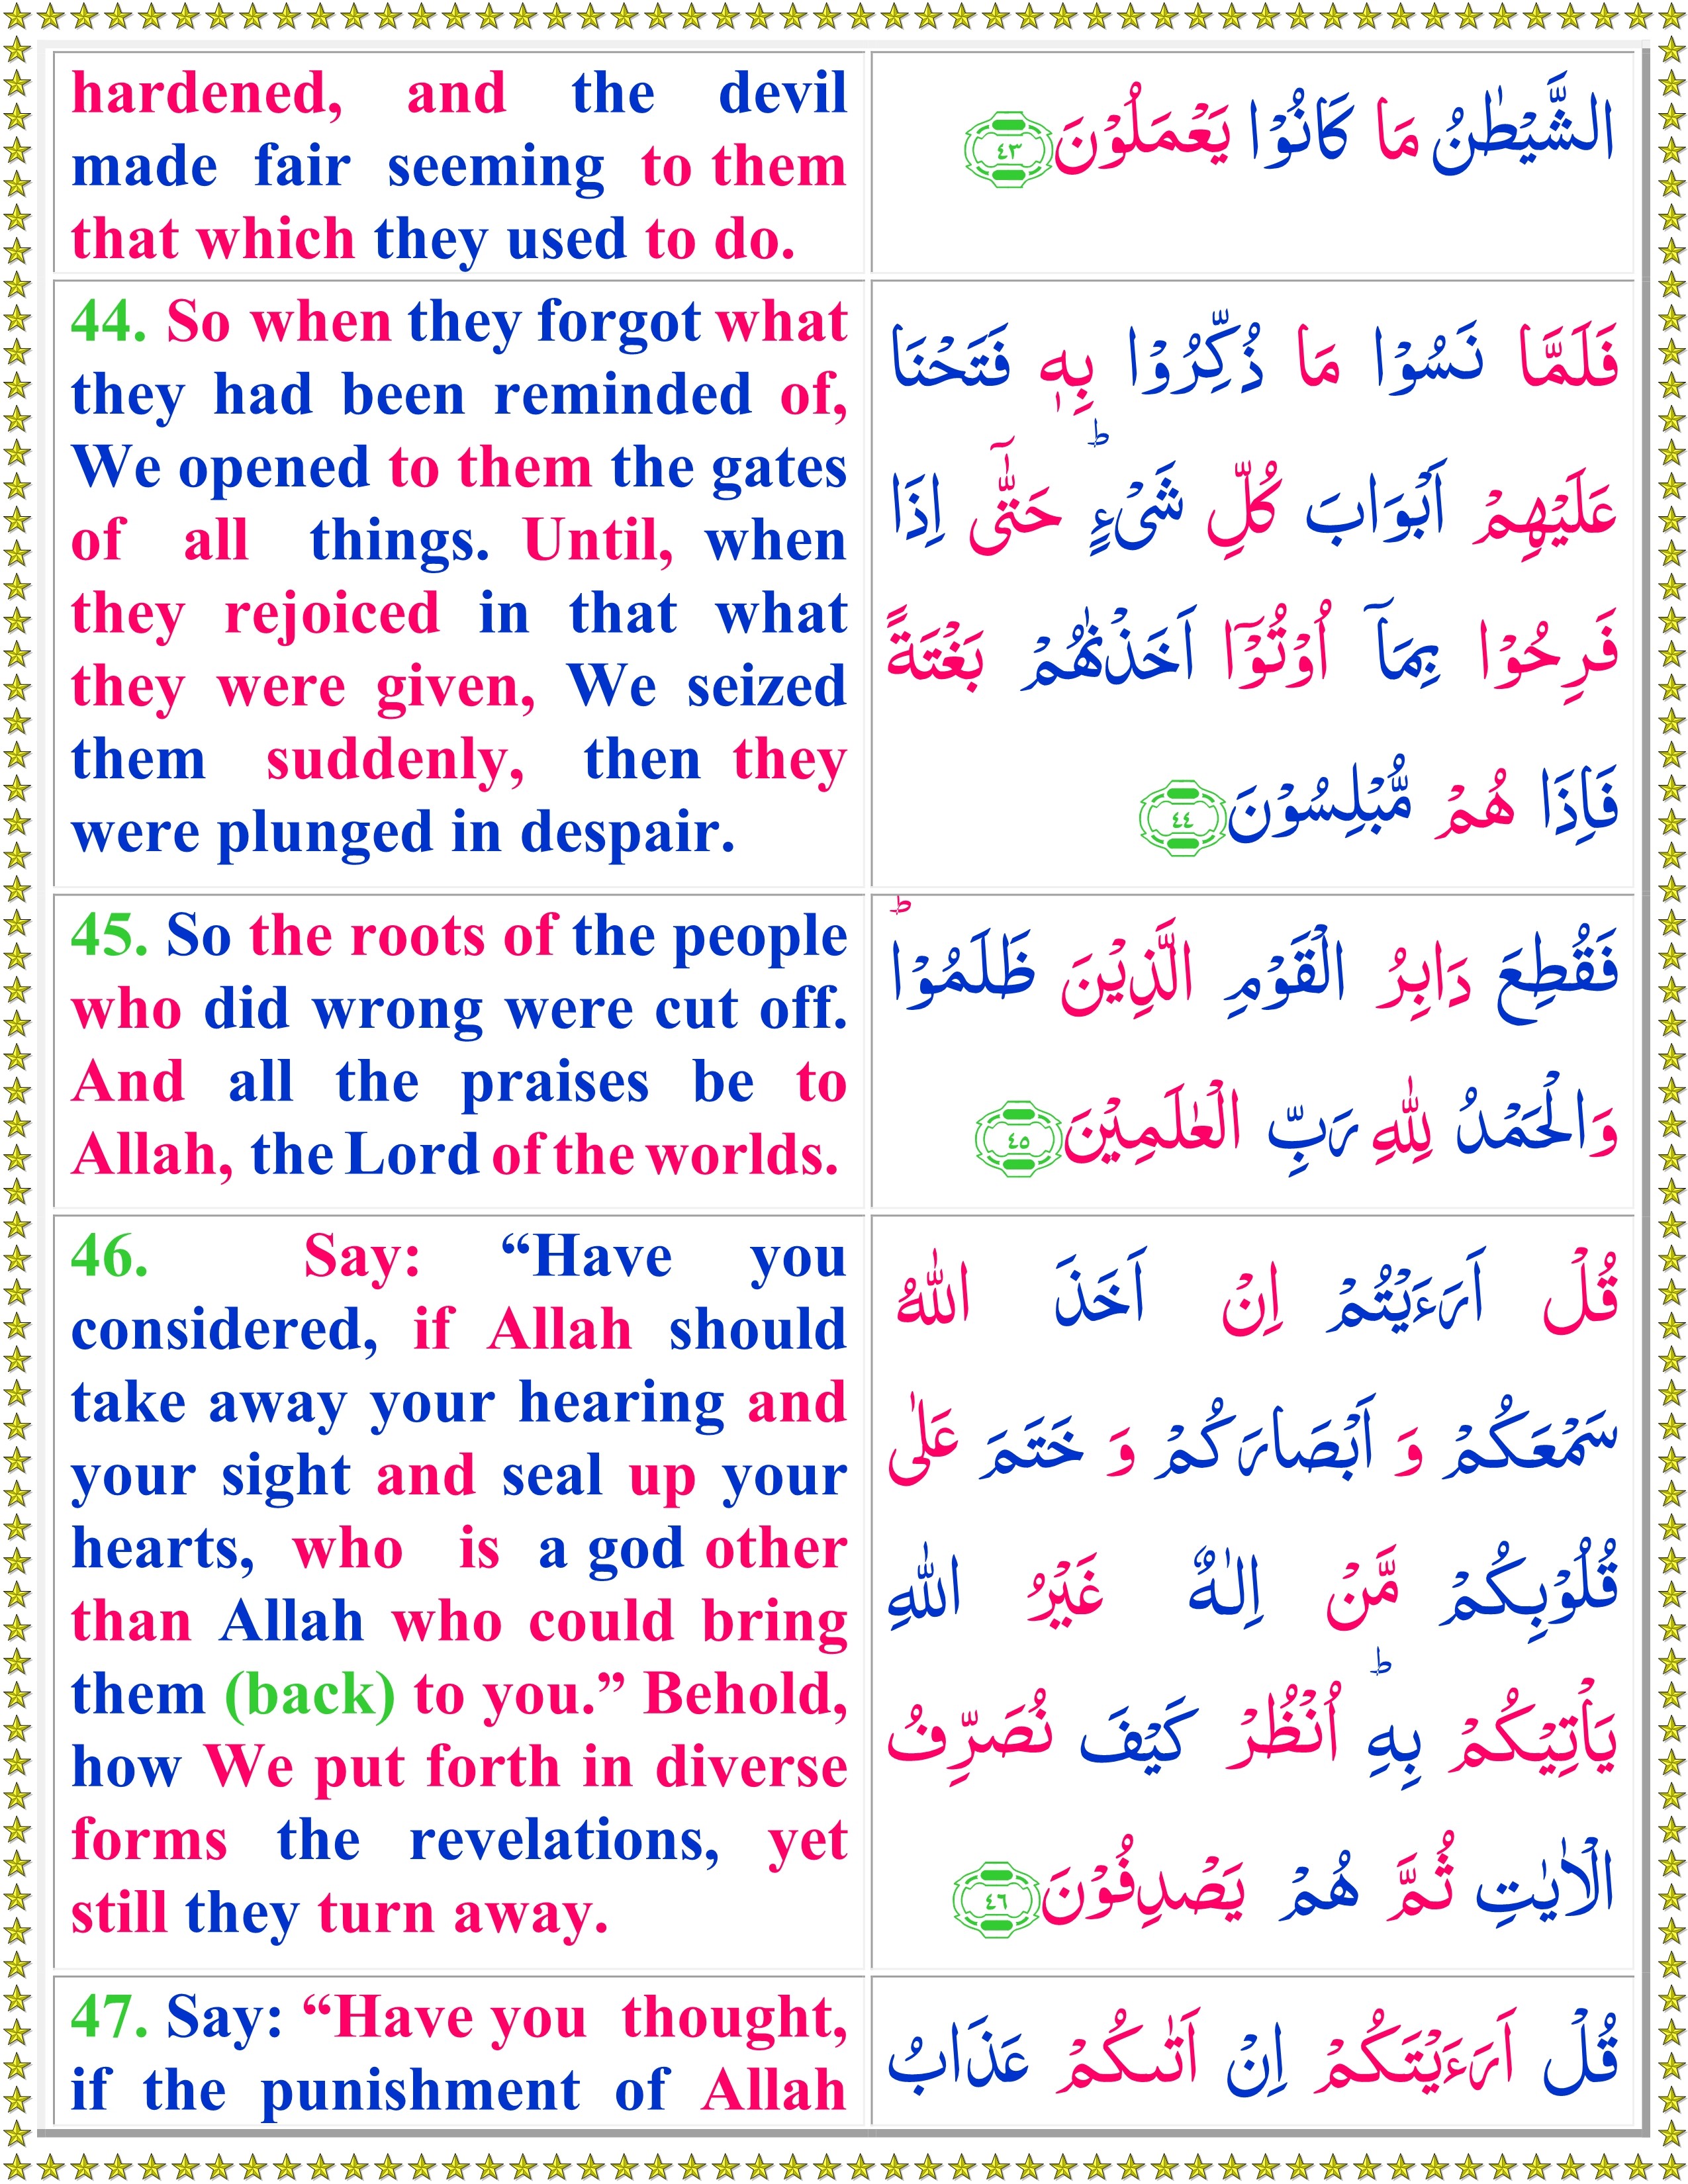 hardened, and the devil
made fair seeming to them
that which they used to do.
الشَّيْطٰنُ مَا كَانُوْا يَعْمَلُوْنَ ٤٣
44. So when they forgot what
they had been reminded of,
We opened to them the gates
of all things. Until, when
they rejoiced in that what
they were given, We seized
them suddenly, then they
were plunged in despair.
فَلَمَّا نَسُوْا مَا ذُكِّرُوْا بِهٖ فَتَحْنَا
عَلَيْهِمْ اَبْوَابَ كُلِّ شَىْءٍ ؕ حَتّٰٓى اِذَا
فَرِحُوْا بِمَاۤ اُوْتُوْۤا اَخَذْنٰهُمْ بَغْتَةً
فَاِذَا هُمْ مُّبْلِسُوْنَ ٤٤
45. So the roots of the people
who did wrong were cut off.
And all the praises be to
Allah, the Lord of the worlds.
فَقُطِعَ دَابِرُ الْقَوْمِ الَّذِيْنَ ظَلَمُوْا ؕ
وَالْحَمْدُ لِلّٰهِ رَبِّ الْعٰلَمِيْنَ ٤٥
46. Say: “Have you
considered, if Allah should
take away your hearing and
your sight and seal up your
hearts, who is a god other
than Allah who could bring
them (back) to you.” Behold,
how We put forth in diverse
forms the revelations, yet
still they turn away.
قُلْ اَرَءَيْتُمْ اِنْ اَخَذَ اللّٰهُ
سَمْعَكُمْ وَ اَبْصَارَكُمْ وَ خَتَمَ عَلٰى
قُلُوْبِكُمْ مَّنْ اِلٰهٌ غَيْرُ اللّٰهِ
يَاْتِيْكُمْ بِهِ ؕ اُنْظُرْ كَيْفَ نُصَرِّفُ
الْاٰيٰتِ ثُمَّ هُمْ يَصْدِفُوْنَ ٤٦
47. Say: “Have you thought,
if the punishment of Allah
قُلْ اَرَءَيْتَكُمْ اِنْ اَتٰٮكُمْ عَذَابُ